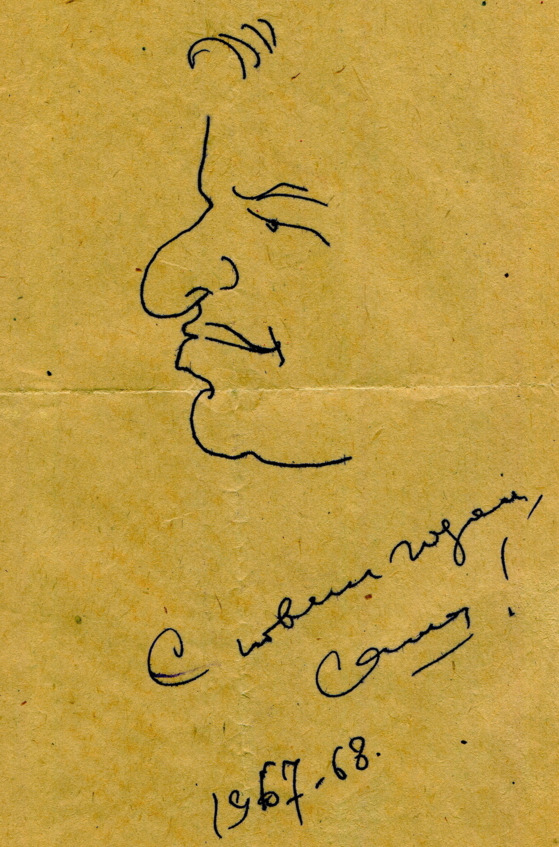 С новым годом,
Саша!
1967-68.